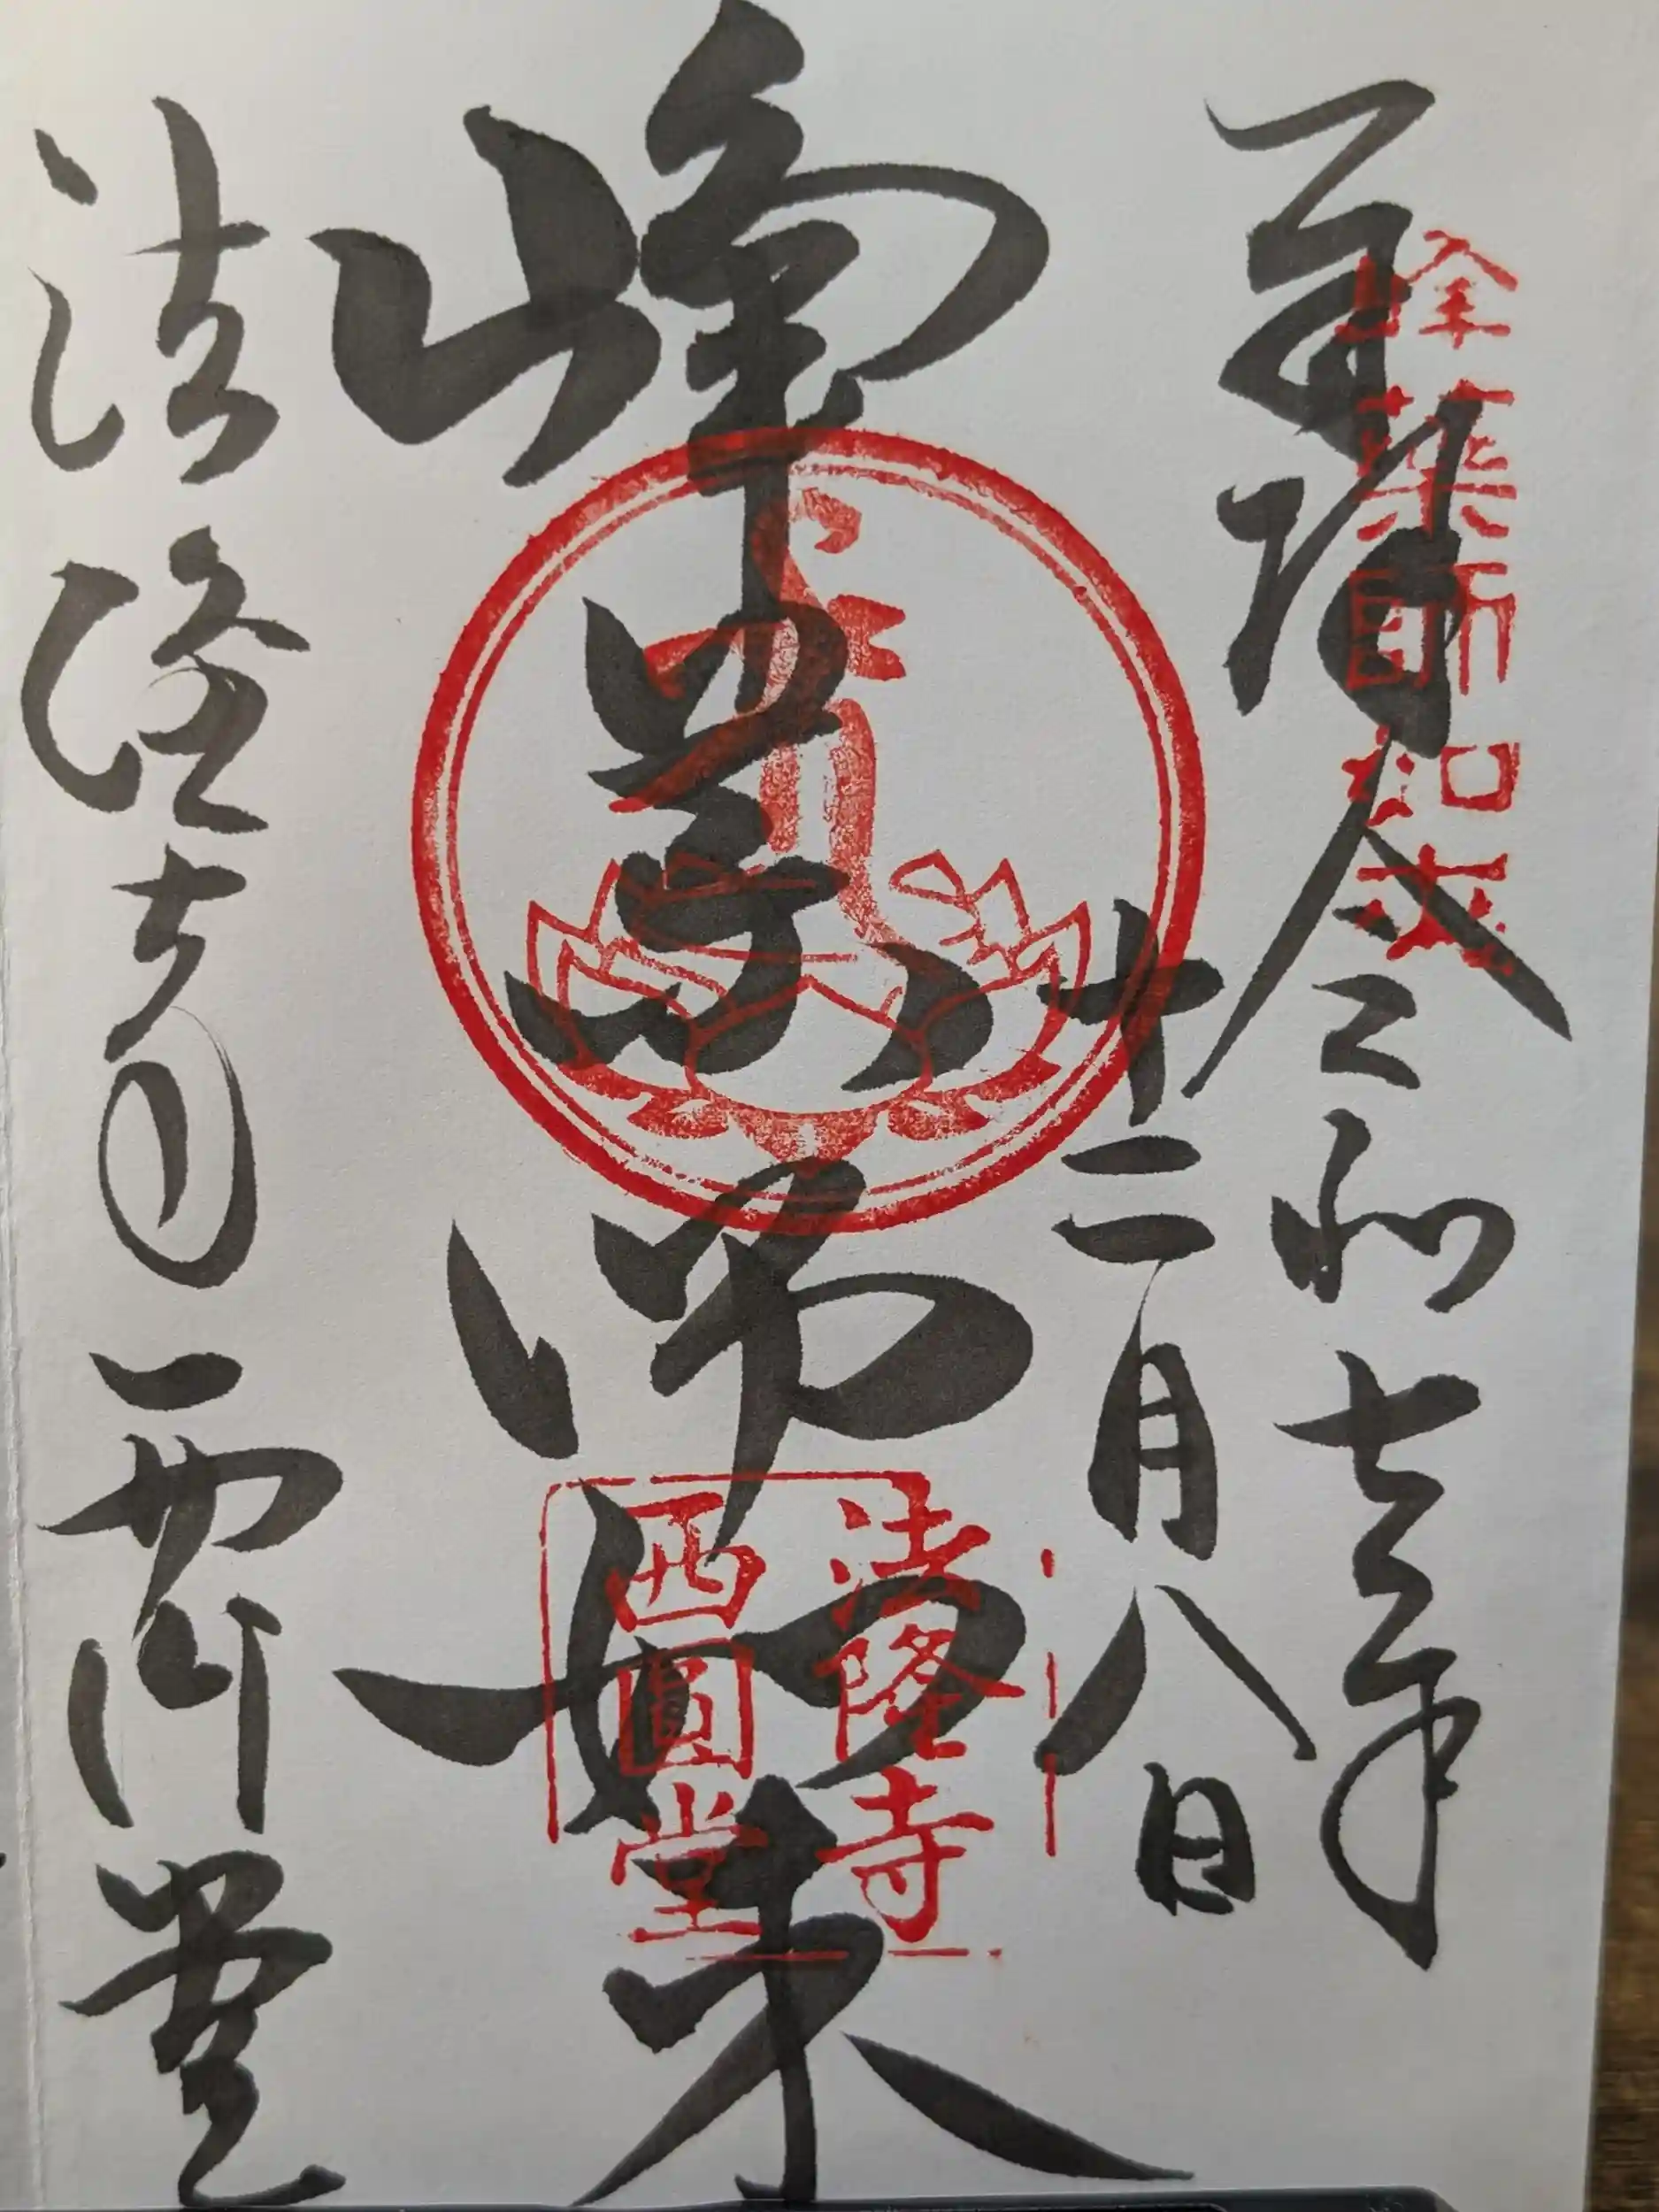 奉拝
峰薬師如来
令和七年
十二月八日
峰薬師如来
法隆寺
西圓堂
法隆寺 西円堂